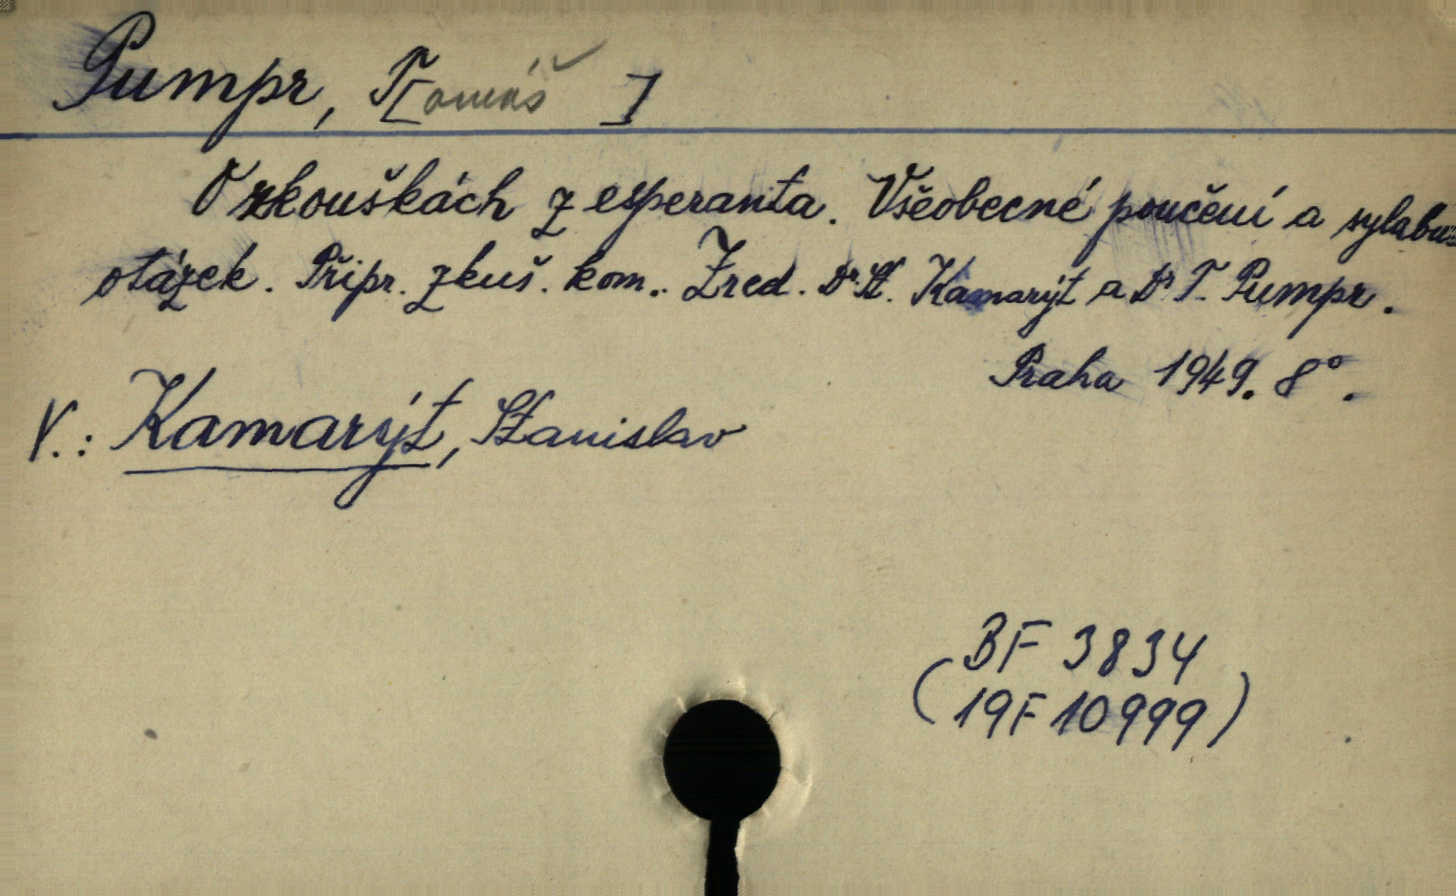 Pumpr, T[omáš ]
O zkouškách z esperanta. Všeobecné poučení a sylabus
otázek. Připr. zkuš. kom. Zred. Dr. St. Kamarýt a Dr T. Pumpr.
Praha 1949. 8°.
V.: Kamarýt, Stanislav
BF 3834
(19F10999)